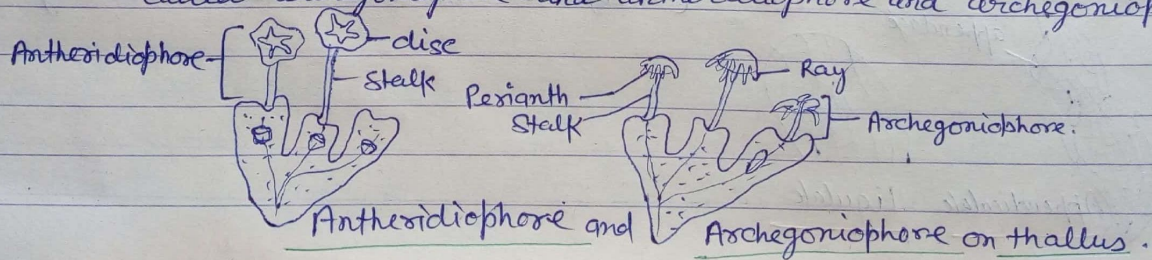 and archegoniop
Antheridiophore
disc
Stalk
Perianth
Stalk
Ray
Archegoniophore.
Antheridiophore and Archegoniophore on thallus.